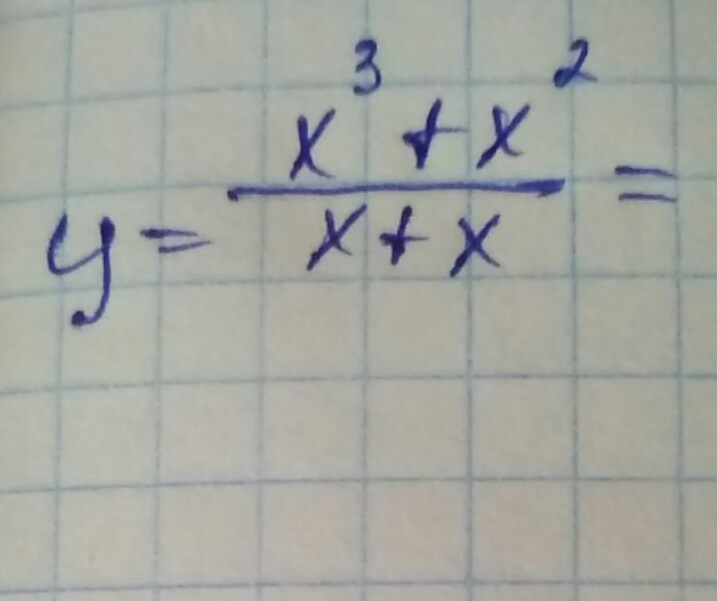 y = \frac{x^3 + x^2}{x + x} =